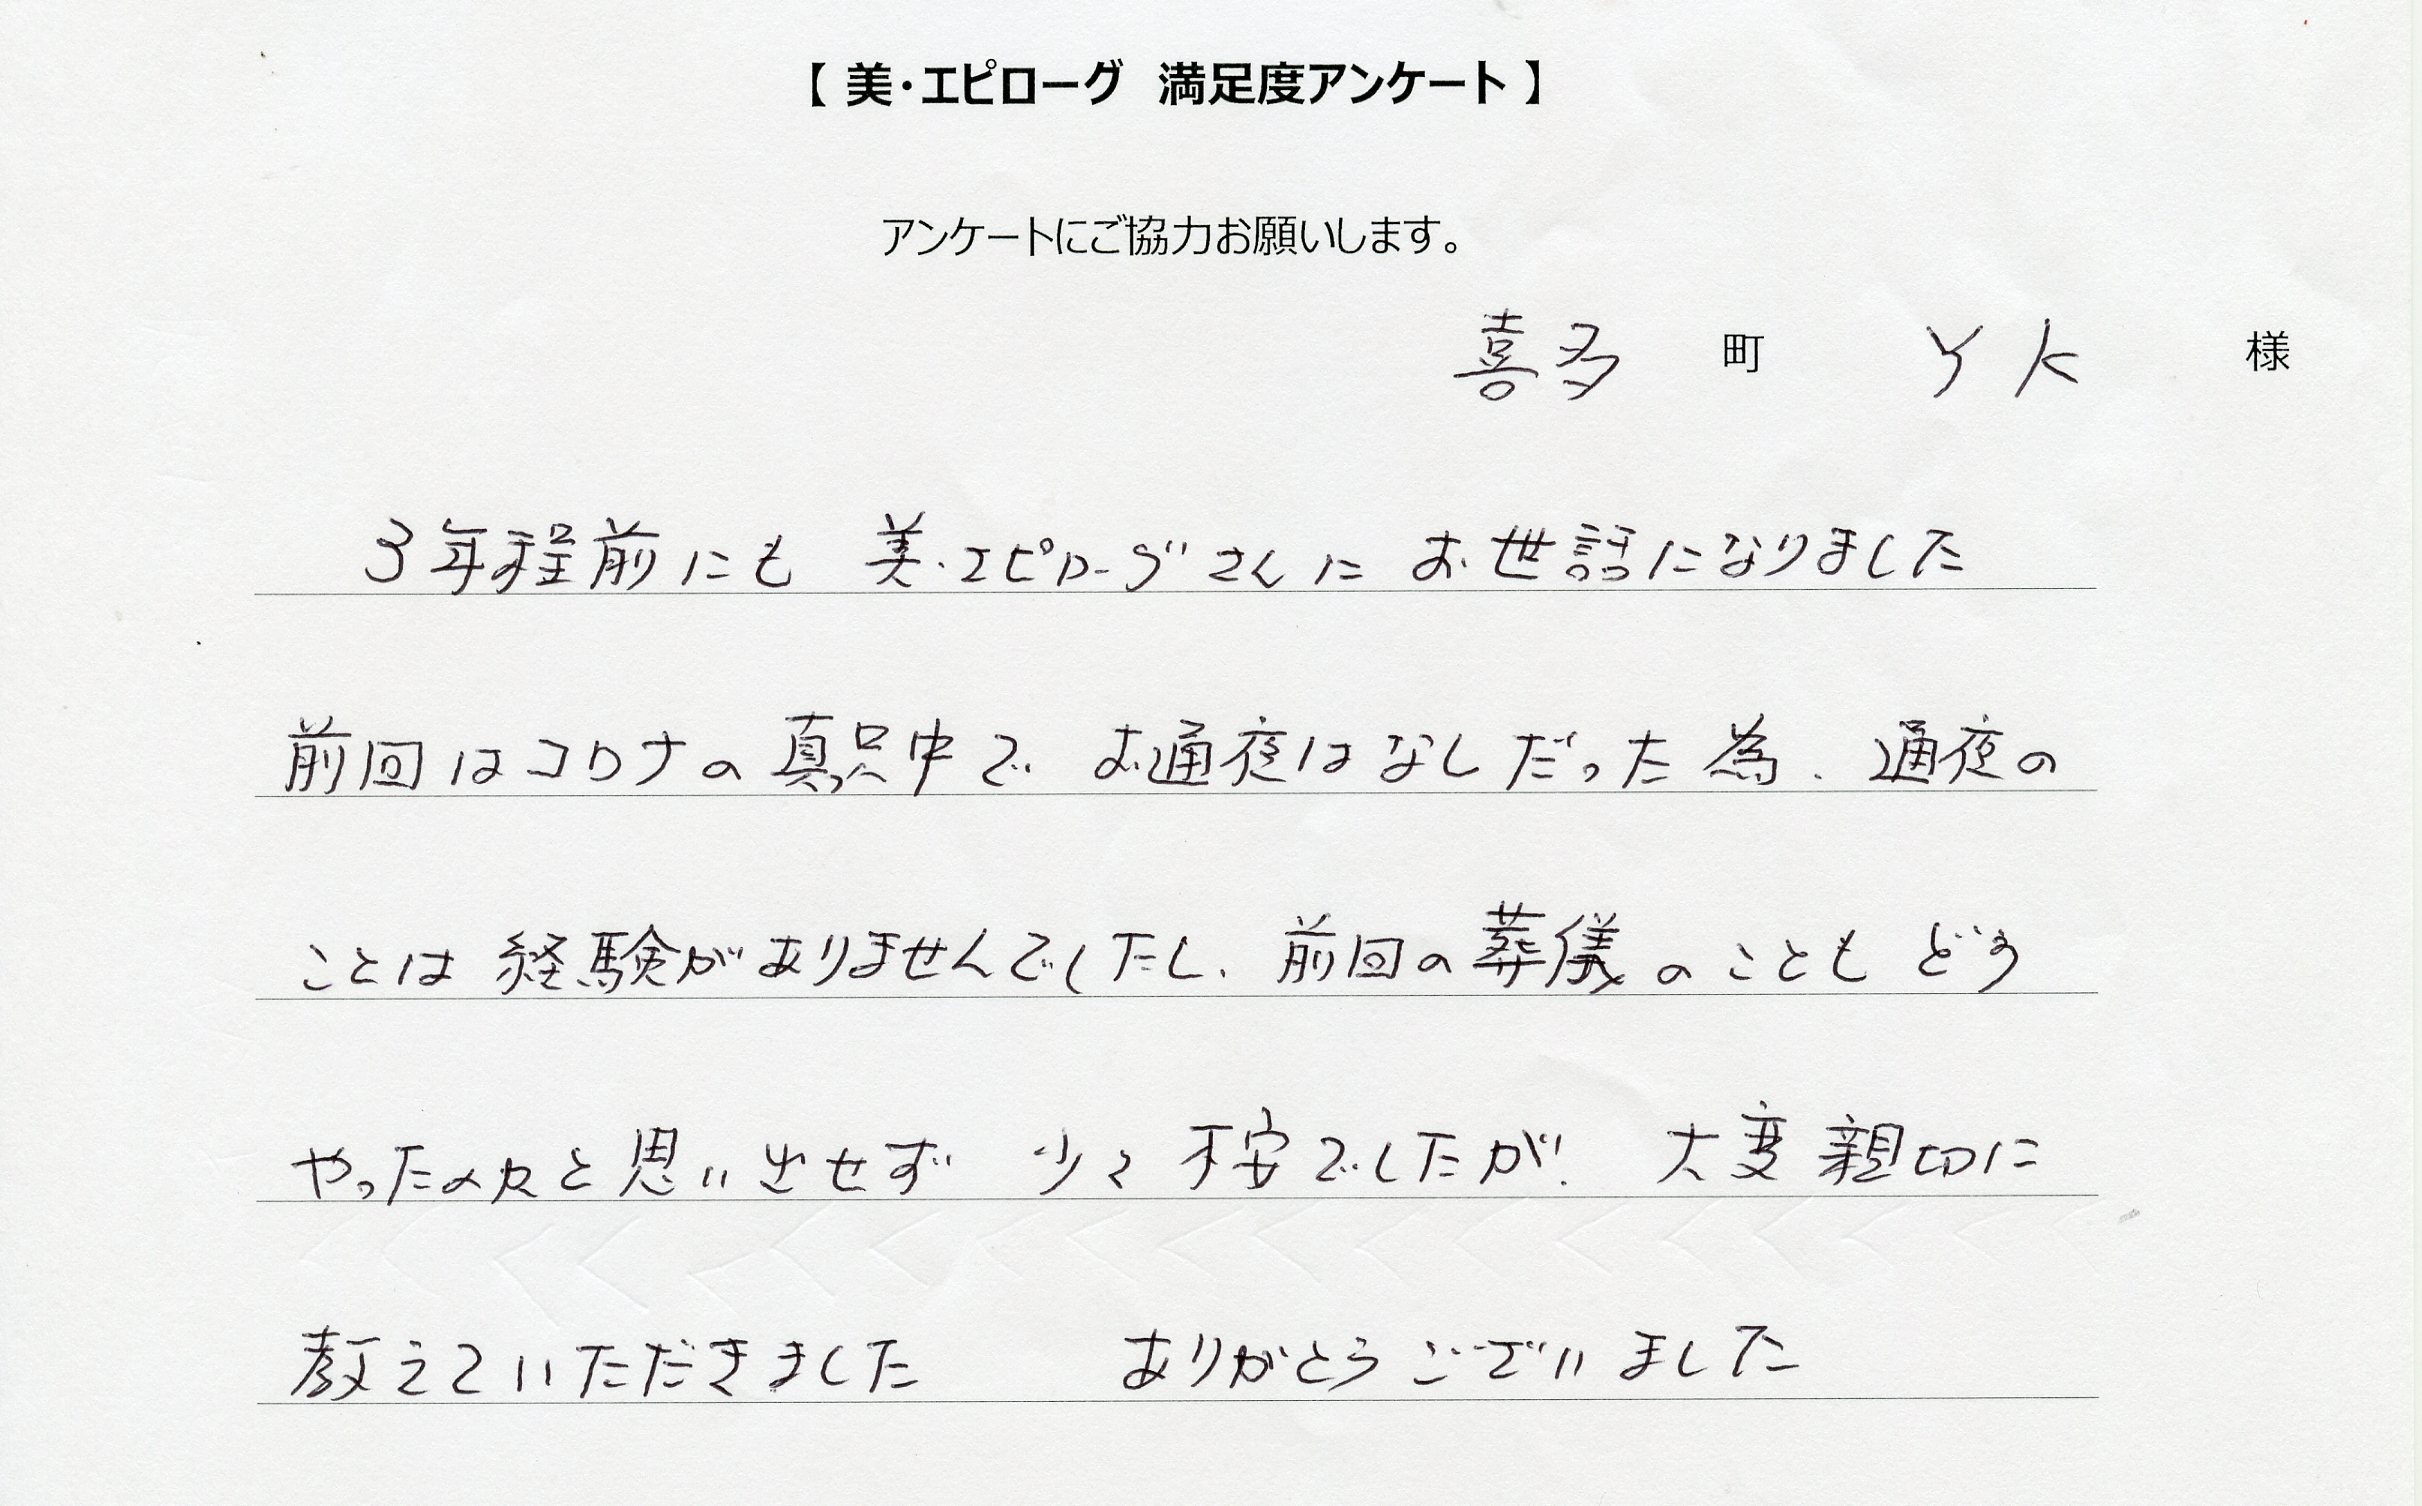 【 美・エピローグ　満足度アンケート 】
アンケートにご協力お願いします。
喜多 町 YK 様
3年程前にも 美・エピローグさんに お世話になりました
前回はコロナの真只中で お通夜はなしだった為、通夜の
ことは経験がありませんでしたし、前回の葬儀のことも どう
やったのかと思い出せず 少々不安でしたが、大変親切に
教えていただきました ありがとうございました